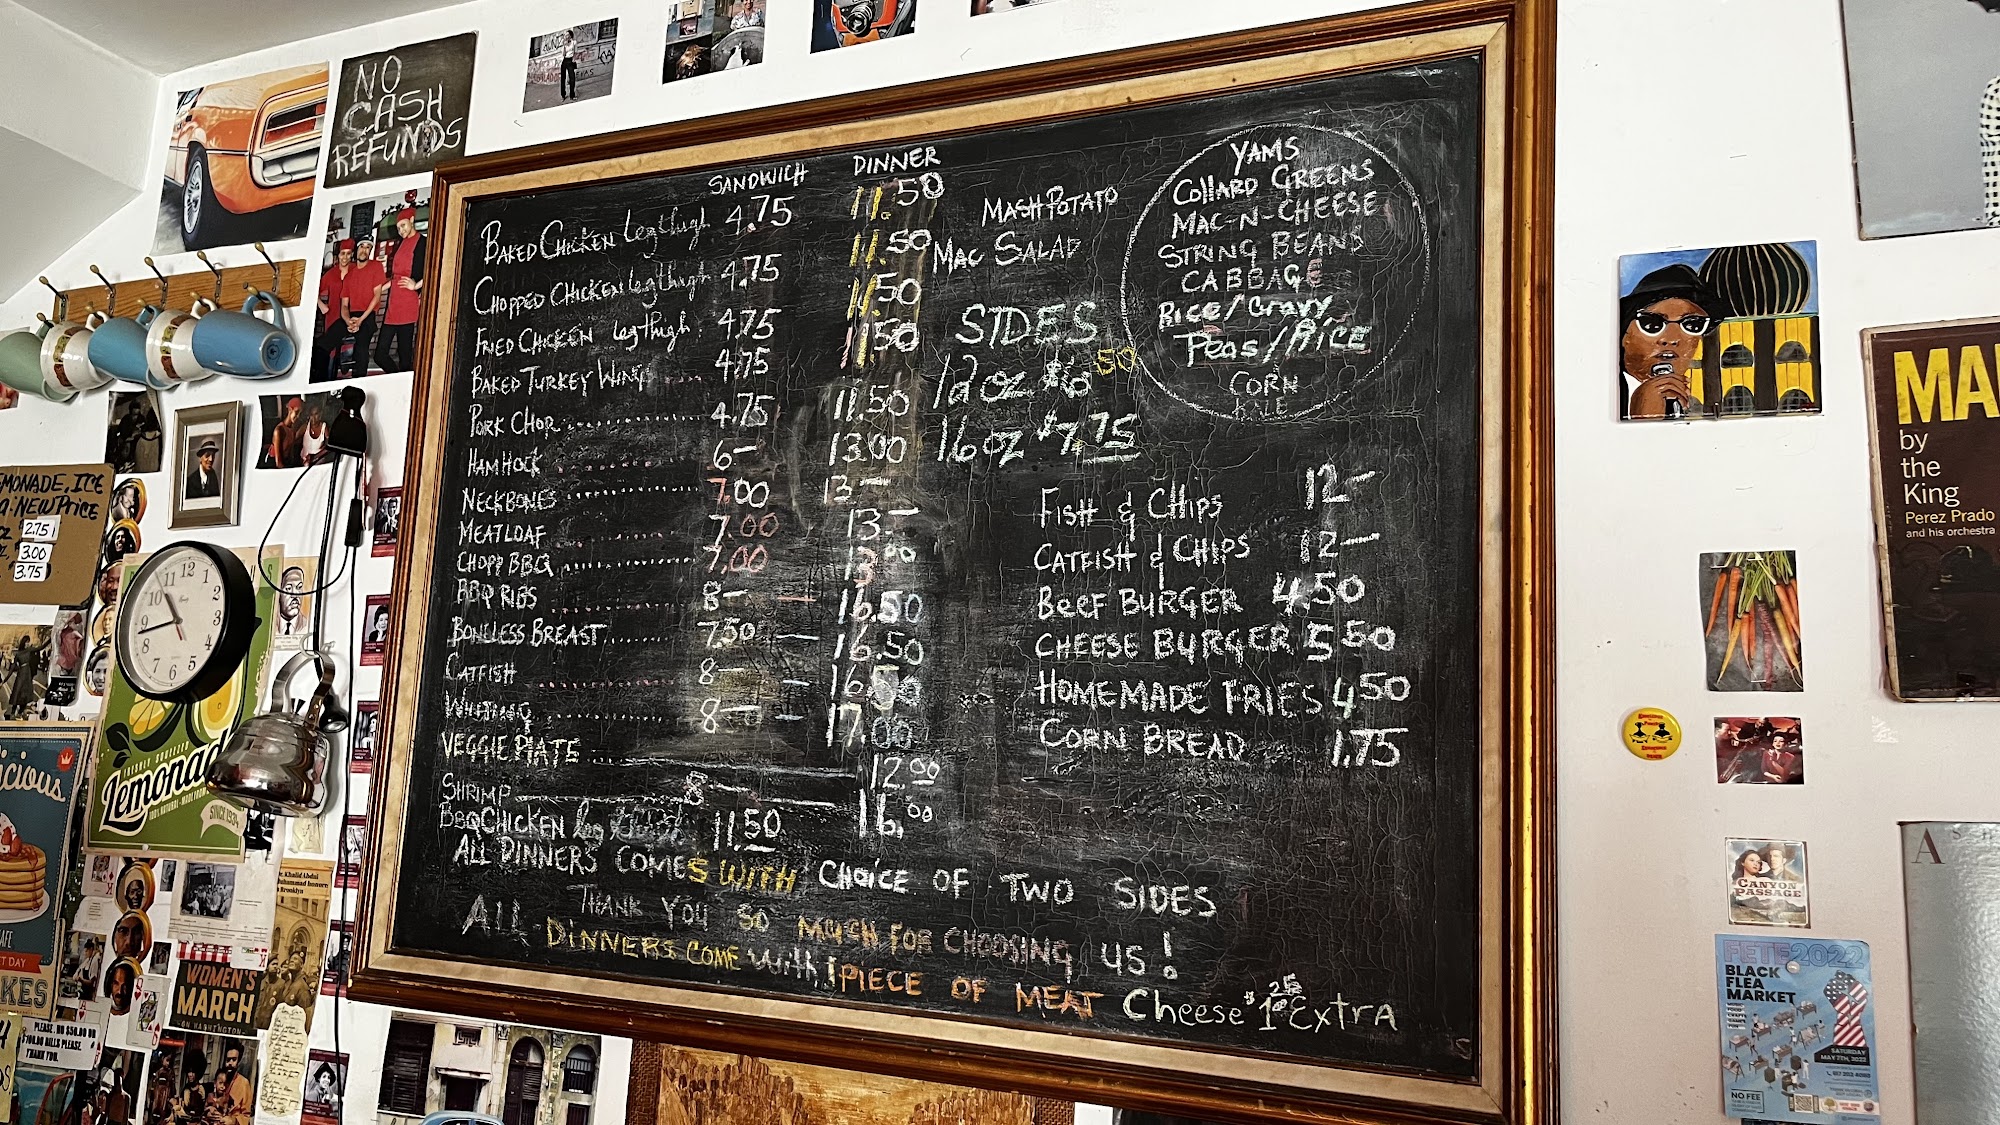 NO
CASH
REFUNDS
SANDWICH DINNER
BAKED CHICKEN leg thigh 4.75 11.50
CHOPPED CHICKEN leg thigh 4.75 11.50
FRIED CHICKEN leg thigh 4.75 11.50
BAKED TURKEY WING 4.75 11.50
PORK CHOP 4.75 11.50
HAM HOCK 6— 13.00
NECKBONES 7.00 13—
MEATLOAF 7.00 13.—
CHOPP BBQ 7.00 13.00
BBQ RIBS 8— 16.50
BONELESS BREAST 7.50 — 16.50
CATFISH 8— — 16.50
WHITING 8— — 17.00
VEGGIE PLATE 12.00
SHRIMP 8 16.00
BBQ CHICKEN leg 11.50
ALL DINNERS COMES WITH CHOICE OF TWO SIDES
THANK YOU SO MUCH FOR CHOOSING US!
ALL DINNERS COME with 1 PIECE OF MEAT Cheese $1.25 Extra
MASH POTATO
MAC SALAD
SIDES
12 oz $6.50
16 oz $7.75
YAMS
COllARD GREENS
MAC-N-CHEESE
STRING BEANS
CABBAGE
Rice/Gravy
Peas/Rice
CORN
KALE
FISH & CHIPS 12—
CATFISH & CHIPS 12—
BEEF BURGER 4.50
CHEESE BURGER 5.50
HOMEMADE FRIES 4.50
CORN BREAD 1.75
NEW PRICE
2.75
3.00
3.75
12
1
2
3
4
5
6
7
8
9
10
11
Lemonad
SINCE 1934
icious
WOMEN'S
MARCH
ON WASHINGTON
PLEASE, NO $50.00 OR
$100.00 BILLS PLEASE.
THANK YOU.
MA
by
the
King
Perez Prado
and his orchestra
CANYON
PASSAGE
A
FETE2022
BLACK
FLEA
MARKET
SATURDAY
MAY 7TH, 2022
NO FEE